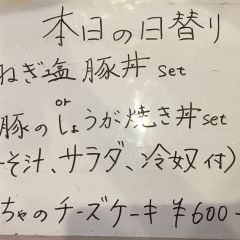 本日の日替り
ねぎ塩豚丼 set
or
豚のしょうが焼き丼 set
そ汁、サラダ、冷奴付)
ちゃのチーズケーキ ¥600-